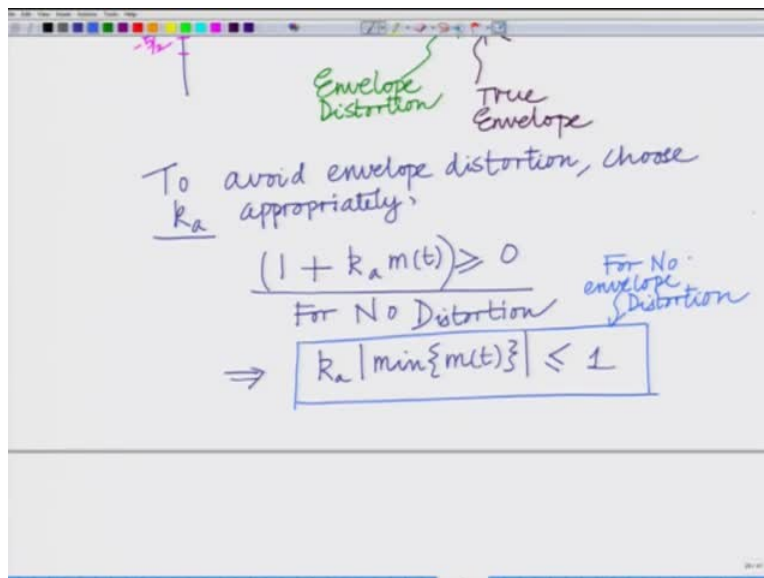 -5/2
Envelope
Distortion
True
Envelope
To avoid envelope distortion, choose
kₐ appropriately,
(1 + kₐ m(t)) ⩾ 0
For No Distortion
For No
envelope
Distortion
⇒ kₐ |min{m(t)}| ⩽ 1